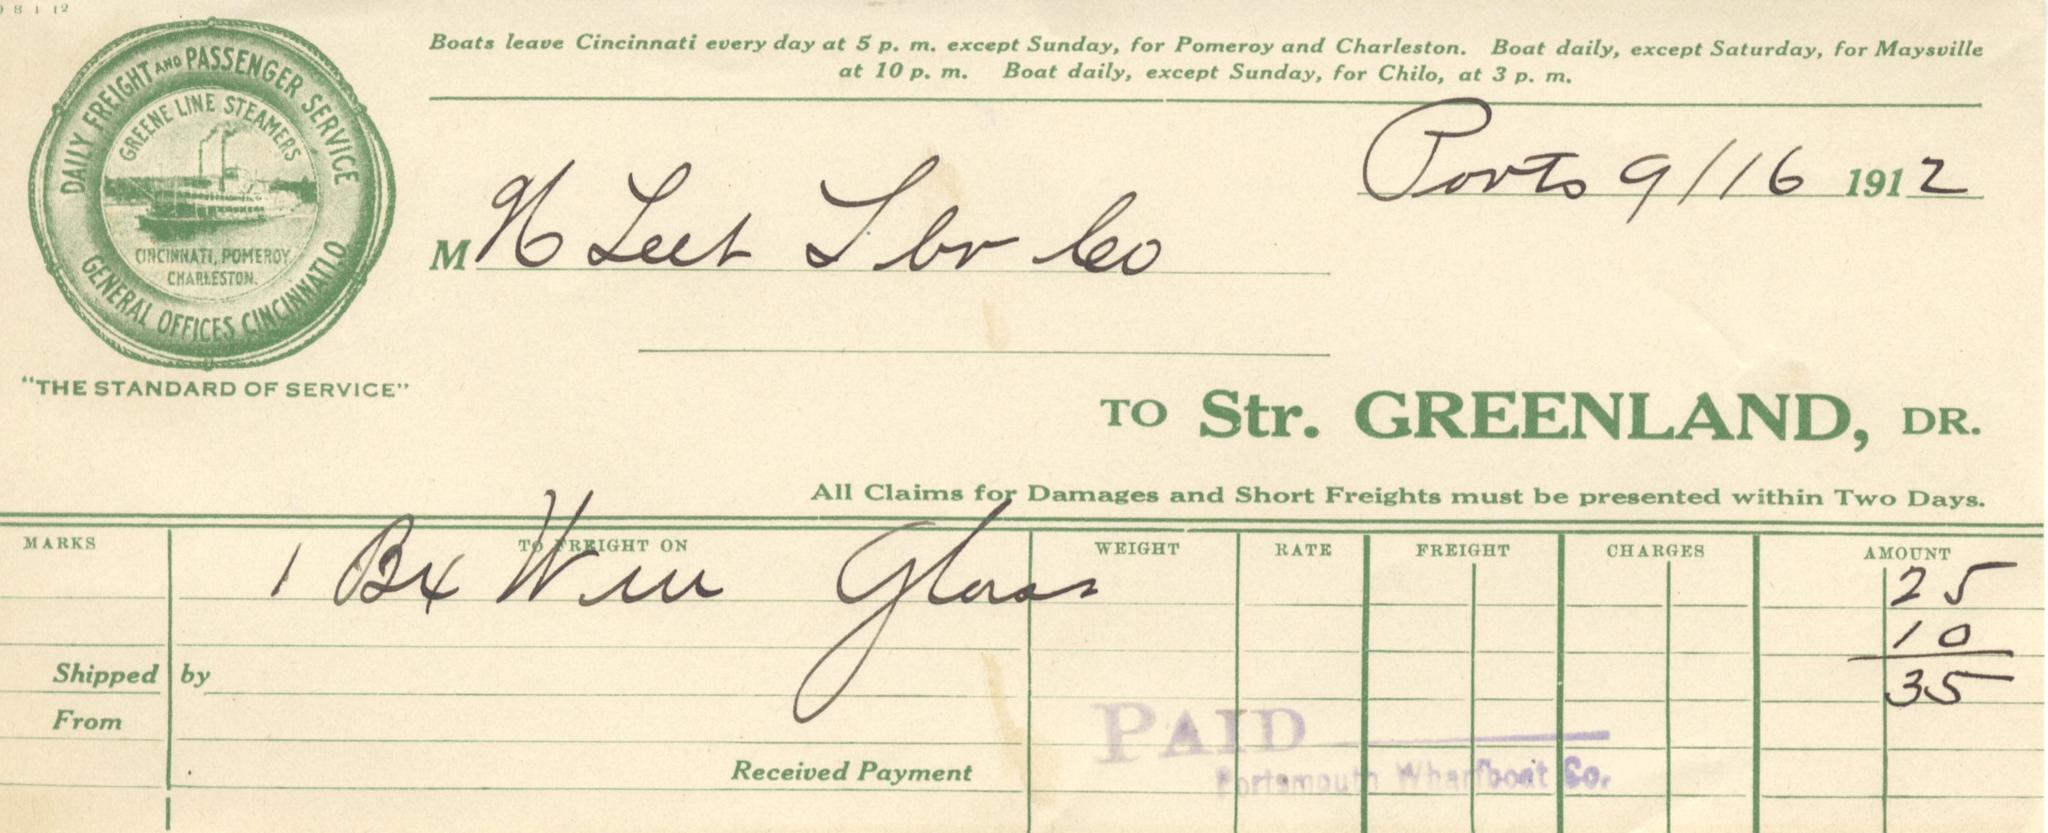 Boats leave Cincinnati every day at 5 p. m. except Sunday, for Pomeroy and Charleston. Boat daily, except Saturday, for Maysville
at 10 p. m. Boat daily, except Sunday, for Chilo, at 3 p. m.
DAILY FREIGHT AND PASSENGER SERVICE
GREENE LINE STEAMERS
CINCINNATI, POMEROY
CHARLESTON.
GENERAL OFFICES CINCINNATI, O
"THE STANDARD OF SERVICE"
Ports 9/16 1912
M N Leet Lbr Co
TO Str. GREENLAND, DR.
All Claims for Damages and Short Freights must be presented within Two Days.
MARKS TO FREIGHT ON WEIGHT RATE FREIGHT CHARGES AMOUNT
1 Bx Win Glass 25
10
35
Shipped by
From
PAID
Received Payment
Portsmouth Wharfboat Co.